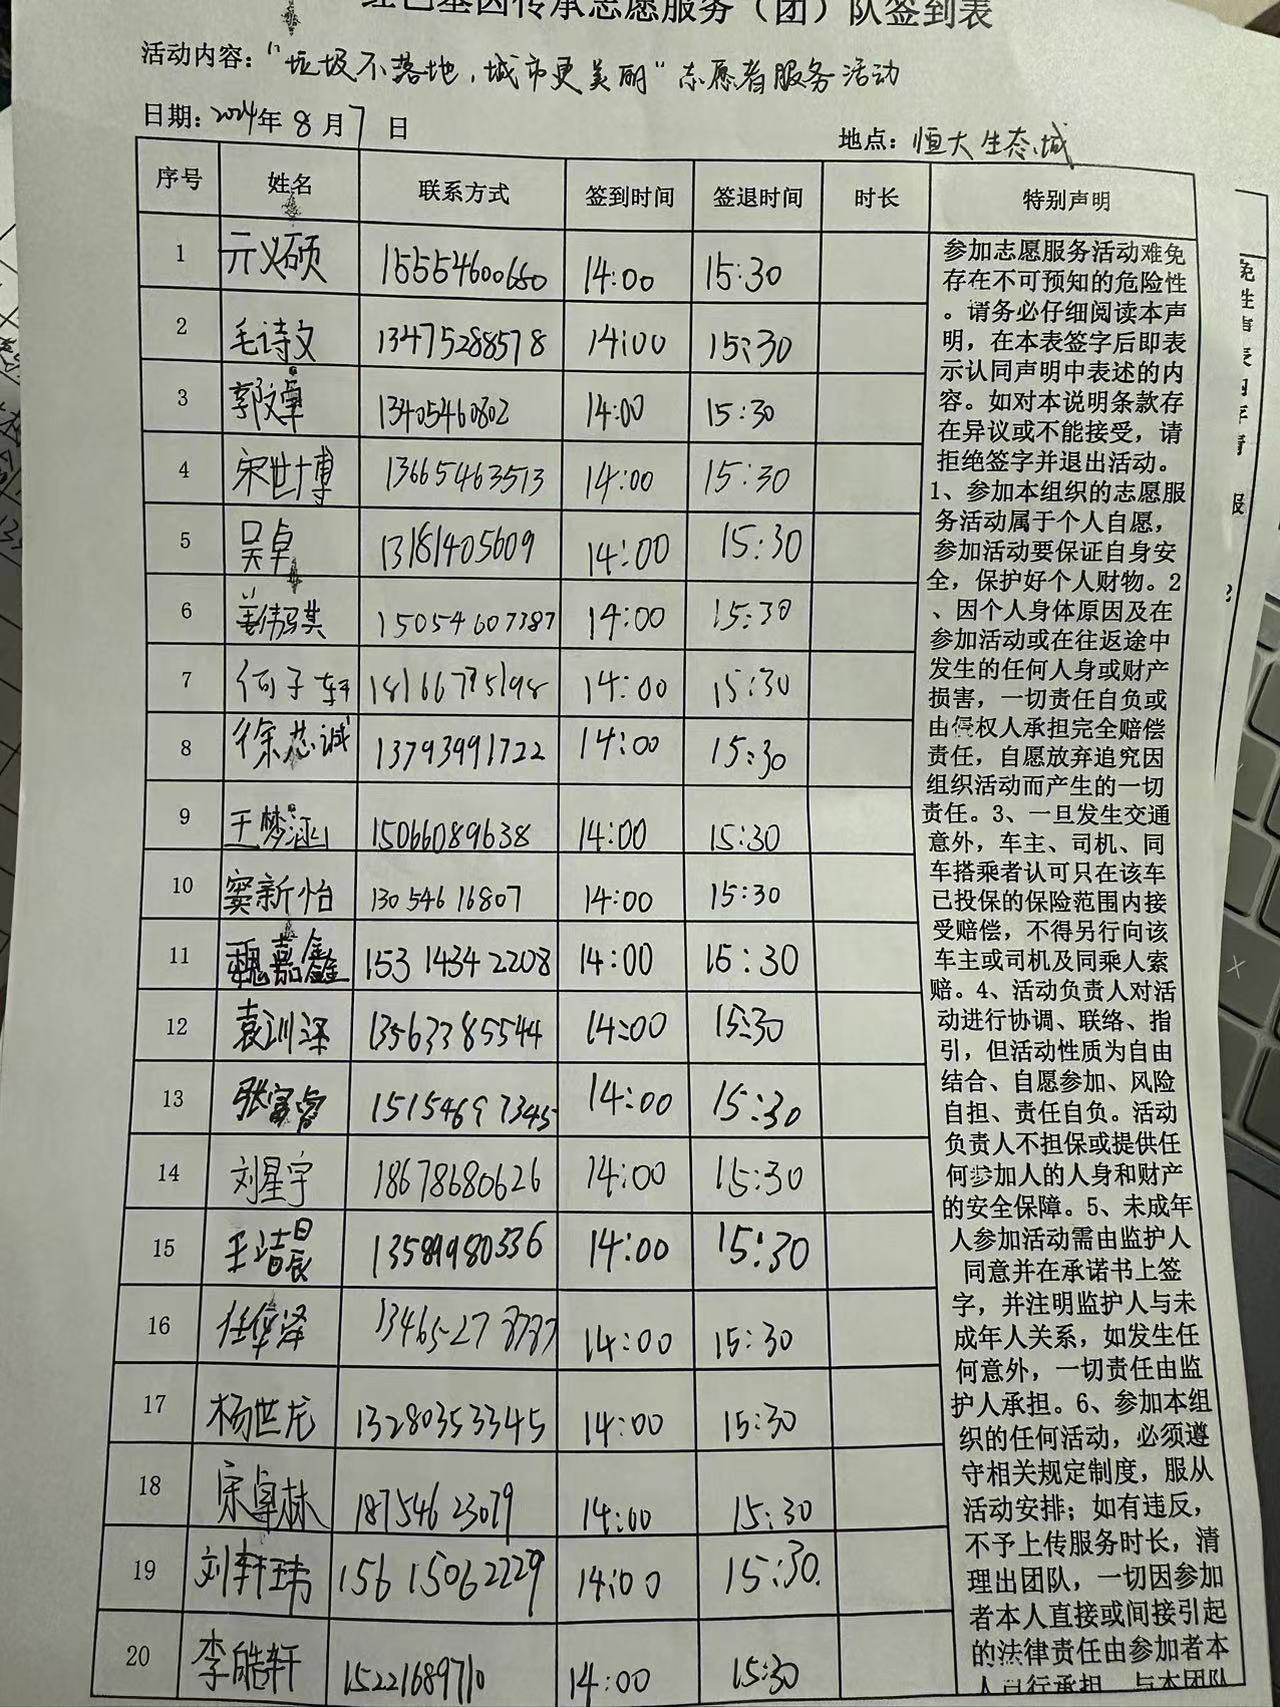 红色基因传承志愿服务（团）队签到表
活动内容：“垃圾不落地，城市更美丽”志愿者服务活动
日期：2024年8月7日
地点：恒大生态城
序号 姓名 联系方式 签到时间 签退时间 时长 特别声明
1 亓义硕 15554600660 14:00 15:30
2 毛诗文 13475288578 14:00 15:30
3 郭文卓 13405460802 14:00 15:30
4 宋世博 13665463513 14:00 15:30
5 吴卓 13181405609 14:00 15:30
6 15054607387 14:00 15:30
7 何子轩 14:00 15:30
8 徐芯诚 13793991722 14:00 15:30
9 王梦涵 15066089638 14:00 15:30
10 窦新怡 13054616807 14:00 15:30
11 魏嘉鑫 15314342208 14:00 15:30
12 袁训深 13563385544 14:00 15:30
13 15154697345 14:00 15:30
14 刘星宇 18678680626 14:00 15:30
15 王浩晨 13589980336 14:00 15:30
16 任华泽 13465278787 14:00 15:30
17 杨世龙 13280353345 14:00 15:30
18 宋卓林 18754623079 14:00 15:30
19 刘轩玮 15615062229 14:00 15:30.
20 李皓轩 15221689710 14:00 15:30
参加志愿服务活动难免
存在不可预知的危险性
。请务必仔细阅读本声
明，在本表签字后即表
示认同声明中表述的内
容。如对本说明条款存
在异议或不能接受，请
拒绝签字并退出活动。
1、参加本组织的志愿服
务活动属于个人自愿，
参加活动要保证自身安
全，保护好个人财物。2
、因个人身体原因及在
参加活动或在往返途中
发生的任何人身或财产
损害，一切责任自负或
由侵权人承担完全赔偿
责任，自愿放弃追究因
组织活动而产生的一切
责任。3、一旦发生交通
意外，车主、司机、同
车搭乘者认可只在该车
已投保的保险范围内接
受赔偿，不得另行向该
车主或司机及同乘人索
赔。4、活动负责人对活
动进行协调、联络、指
引，但活动性质为自由
结合、自愿参加、风险
自担、责任自负。活动
负责人不担保或提供任
何参加人的人身和财产
的安全保障。5、未成年
人参加活动需由监护人
同意并在承诺书上签
字，并注明监护人与未
成年人关系，如发生任
何意外，一切责任由监
护人承担。6、参加本组
织的任何活动，必须遵
守相关规定制度，服从
活动安排；如有违反，
不予上传服务时长，清
理出团队，一切因参加
者本人直接或间接引起
的法律责任由参加者本
人自行承担，与本团队